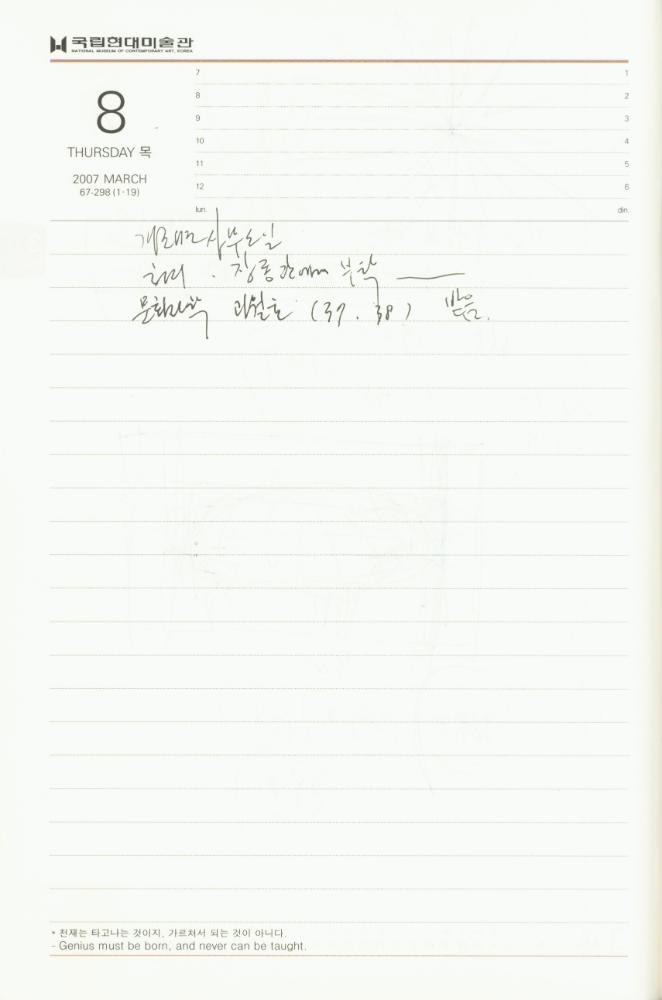 국립현대미술관
NATIONAL MUSEUM OF CONTEMPORARY ART, KOREA
7 1
8 2
8 9 3
THURSDAY 목 10 4
2007 MARCH 11 5
67-298 (1·19) 12 6
lun. din.
부
문화과학 과월호 (37. 38) 받음.
* 천재는 타고나는 것이지, 가르쳐서 되는 것이 아니다.
- Genius must be born, and never can be taught.